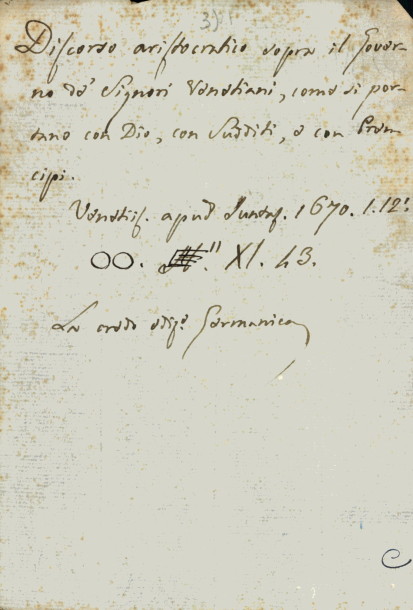 3)
Discorso aristocratico sopra il Gover-
no de' Signori Venetiani, come si por-
tano con Dio, con Sudditi, e con Pren-
cipi.
Venetiis. apud Juntas. 1670. 1.12:
OO. XI. 43.
La credo ediz.e Germanica
C